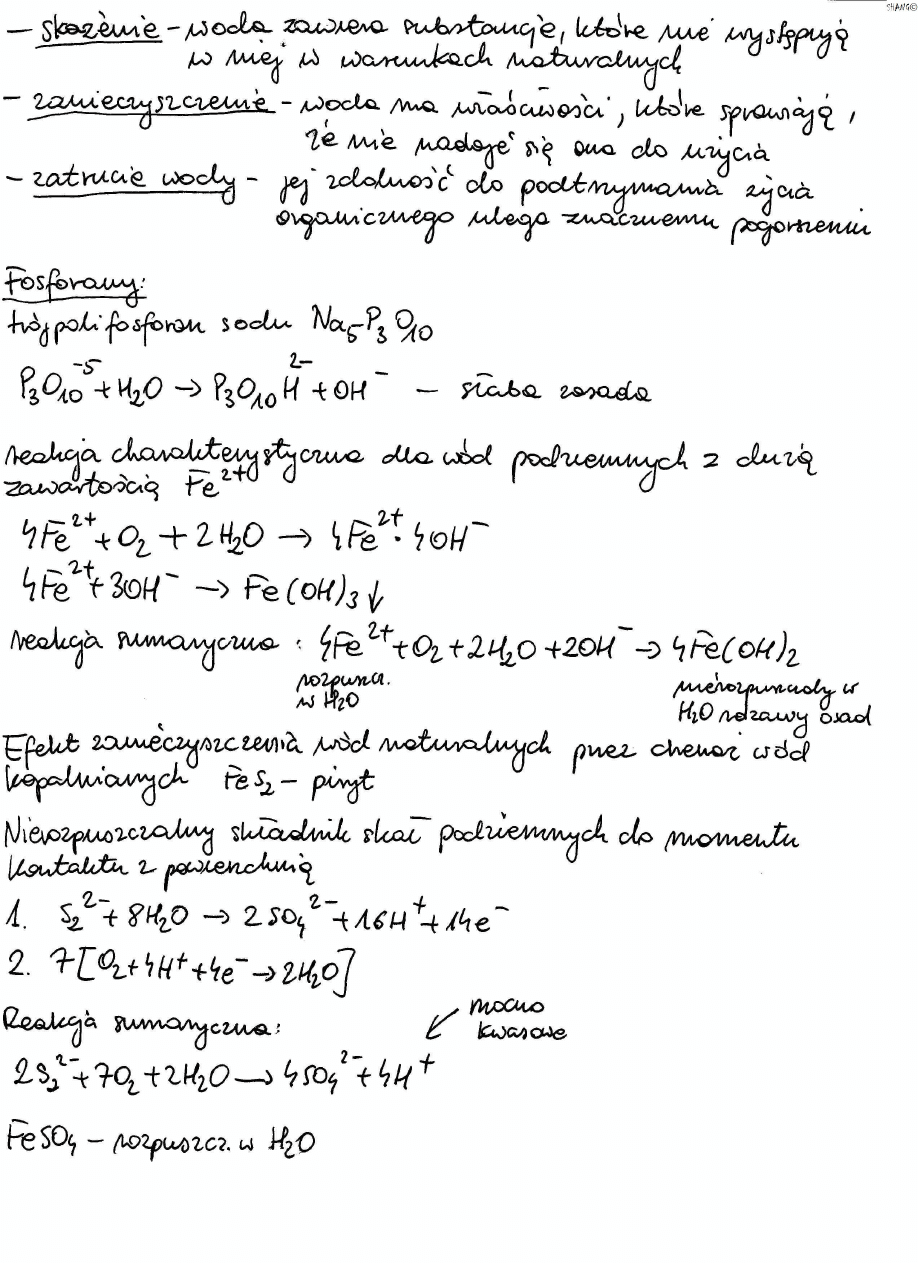 SHANG©
- skażenie - woda zawiera substancje, które nie występują
w niej w warunkach naturalnych
- zanieczyszczenie - woda ma właściwości, które sprawiają,
że nie nadaje się ona do użycia
- zatrucie wody - jej zdolność do podtrzymania życia
organicznego ulega znacznemu pogorszeniu
Fosforany:
trójpolifosforan sodu Na₅P₃O₁₀
P₃O₁₀⁻⁵ + H₂O → P₃O₁₀H²⁻ + OH⁻ - słaba zasada
reakcja charakterystyczna dla wód podziemnych z dużą
zawartością Fe²⁺
4Fe²⁺ + O₂ + 2H₂O → 4Fe²⁺ · 4OH⁻
4Fe²⁺ + 3OH⁻ → Fe(OH)₃↓
reakcja sumaryczna: 4Fe²⁺ + O₂ + 2H₂O + 2OH⁻ → 4Fe(OH)₂
rozpuszcz. nierozpuszczalny w
w H₂O H₂O rdzawy osad
Efekt zanieczyszczenia wód naturalnych przez chemię wód
kopalnianych FeS₂ - piryt
Nierozpuszczalny składnik skał podziemnych do momentu
kontaktu z powierzchnią
1. S₂²⁻ + 8H₂O → 2SO₄²⁻ + 16H⁺ + 14e⁻
2. 7[O₂ + 4H⁺ + 4e⁻ → 2H₂O]
Reakcja sumaryczna: ↙ mocno
kwasowe
2S₂²⁻ + 7O₂ + 2H₂O → 4SO₄²⁻ + 4H⁺
FeSO₄ - rozpuszcz. w H₂O